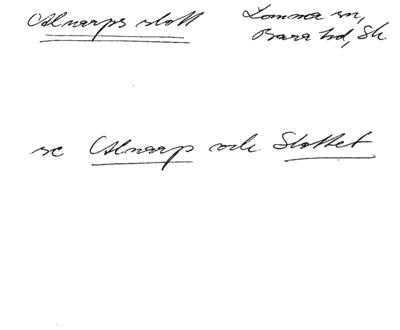 Alnarps slott
Lomma sn,
Bara hd, Sk
se Alnarp och Slottet